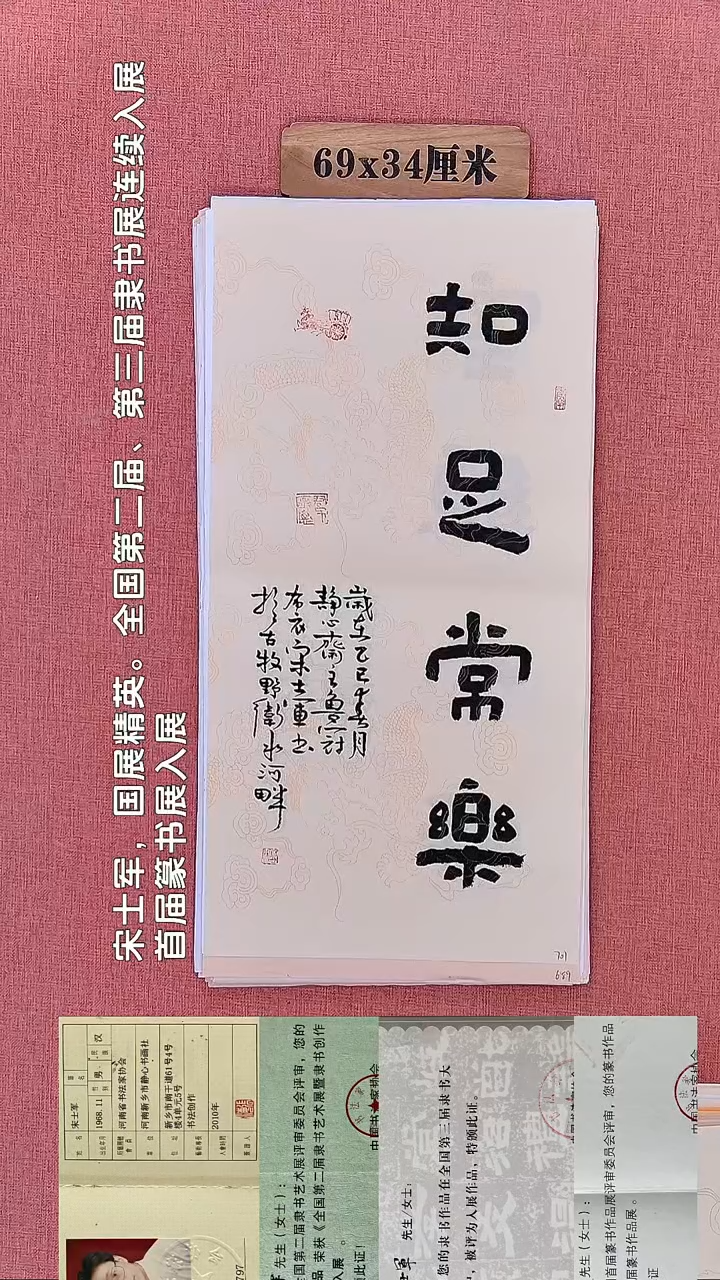 宋士军，国展精英。全国第二届、第三届隶书展连续入展
首届篆书展入展
69x34厘米
知足常樂
歲在乙巳年春月
静心齋主魚冠
布衣宋士軍书
於古牧野衛水河畔
宋士军
1968.11 男 汉
河南省书法家协会
河南新乡市静心书画社
新乡市南干道61号4号
楼4单元5号
书法创作
2010年
先生（女士）：
全国第二届隶书艺术展评审委员会评审，您的
品 荣获《全国第二届隶书艺术展暨隶书创作
入展 。
此证！
先生/女士：
您的隶书作品在全国第三届隶书大
，被评为入展作品，特颁此证。
先生（女士）：
首届篆书作品展评审委员会评审，您的篆书作品
届篆书作品展 。
此证